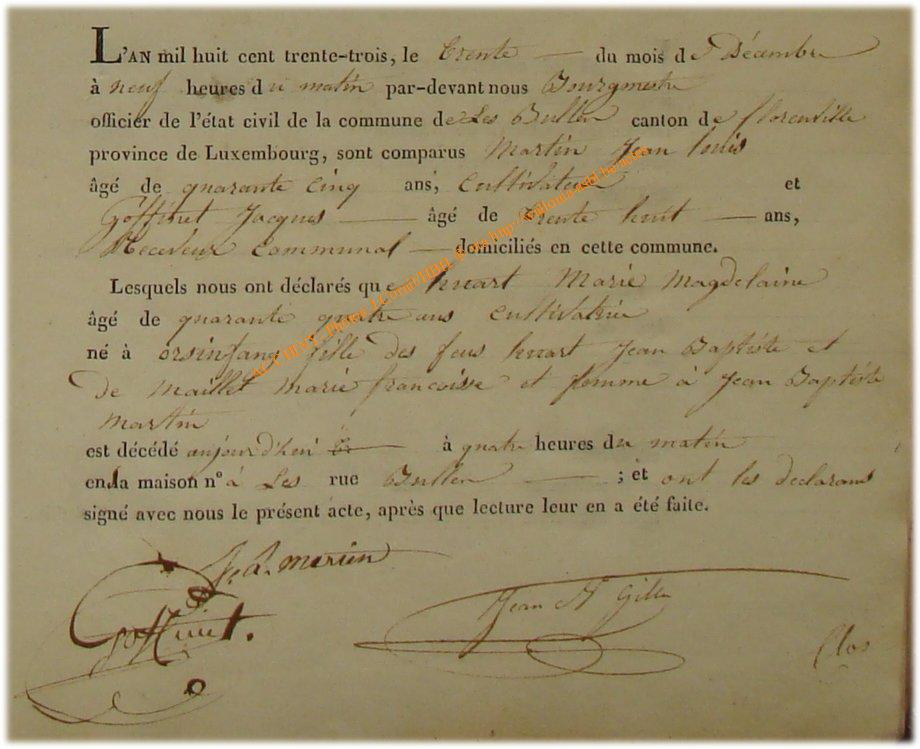 L'AN mil huit cent trente-trois, le trente du mois de Décembre
à neuf heures du matin par-devant nous Bourgmestre
officier de l'état civil de la commune de Les Bulles canton de florenville
province de Luxembourg, sont comparus Martin Jean louis
âgé de quarante cinq ans, cultivateur et
Goffinet Jacques âgé de trente huit ans,
Receveur communal domiciliés en cette commune.
Lesquels nous ont déclarés que huart Marie Magdelaine
âgé de quarante quatre ans cultivatrice
né à orsinfaing fille des feus huart Jean Baptiste et
de Maillet marie francoisse et femme à Jean Baptiste
Martin
est décédé aujourd'hui à quatre heures du matin
en la maison n° à Les rue Bulles ; et ont les declarans
signé avec nous le présent acte, après que lecture leur en a été faite.
Goffinet
Jean Gille